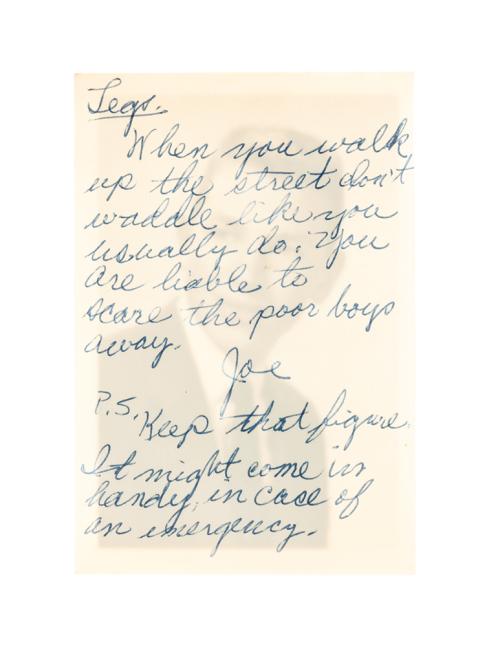 Legs.
When you walk
up the street don't
waddle like you
usually do. You
are liable to
scare the poor boys
away.
Joe
P.S. Keep that figure.
It might come in
handy, in case of
an emergency.